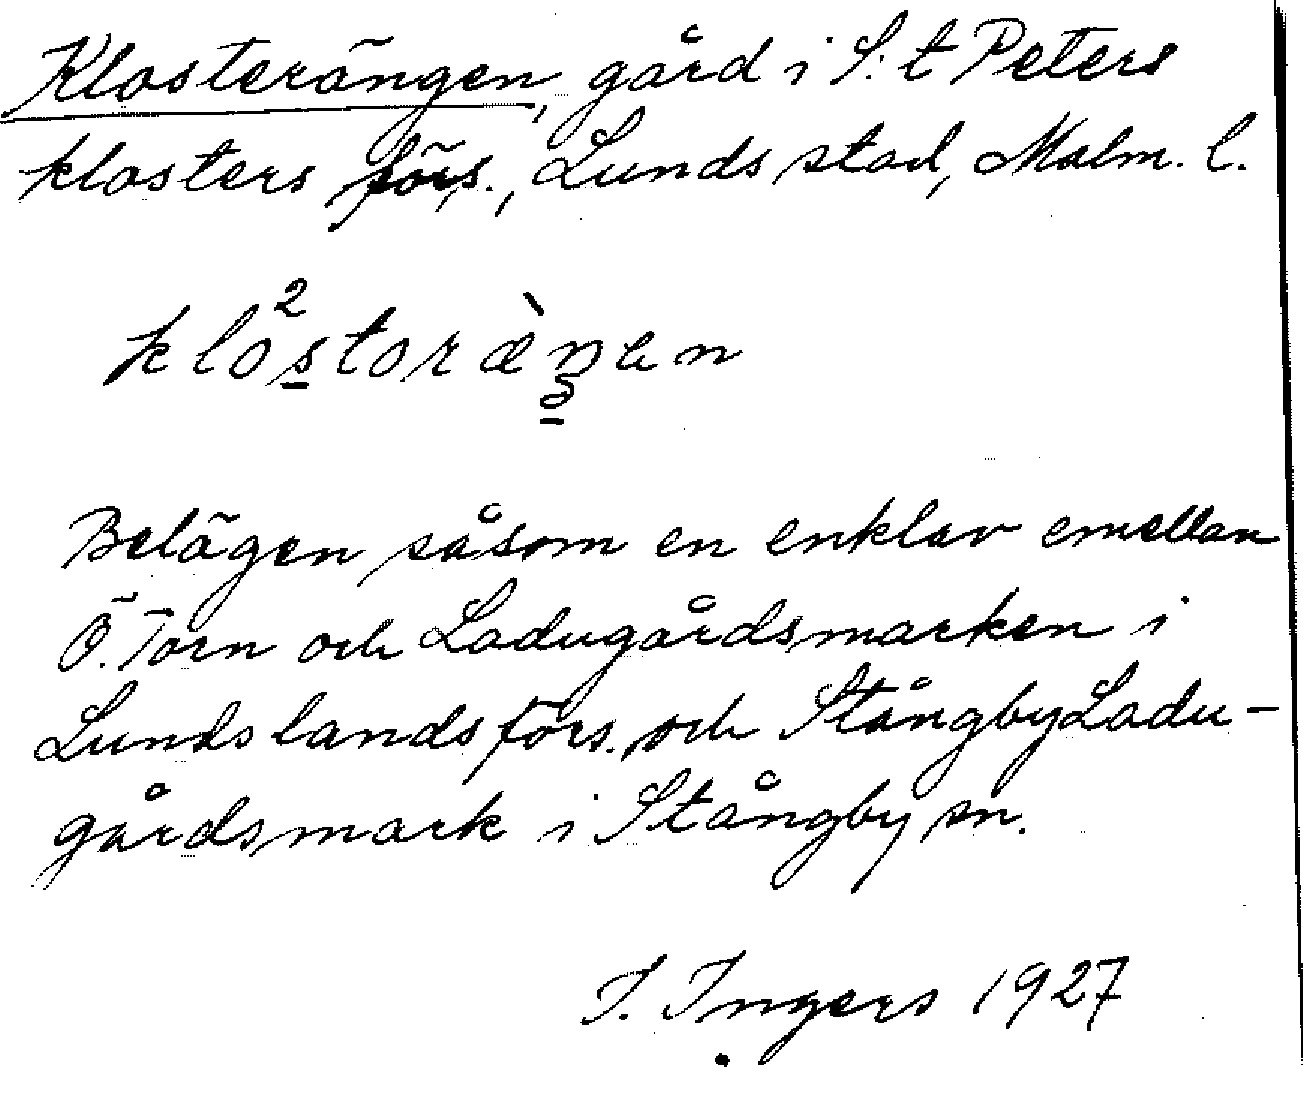 Klosterängen, gård i S:t Peters
klosters förs., Lunds stad, Malm. l.
klo²storæ̀ŋen
Belägen såsom en enklav emellan
Ö. Torn och Ladugårdsmarken i
Lunds landsförs. och Stångby Ladu-
gårdsmark i Stångby sn.
I. Ingers 1927